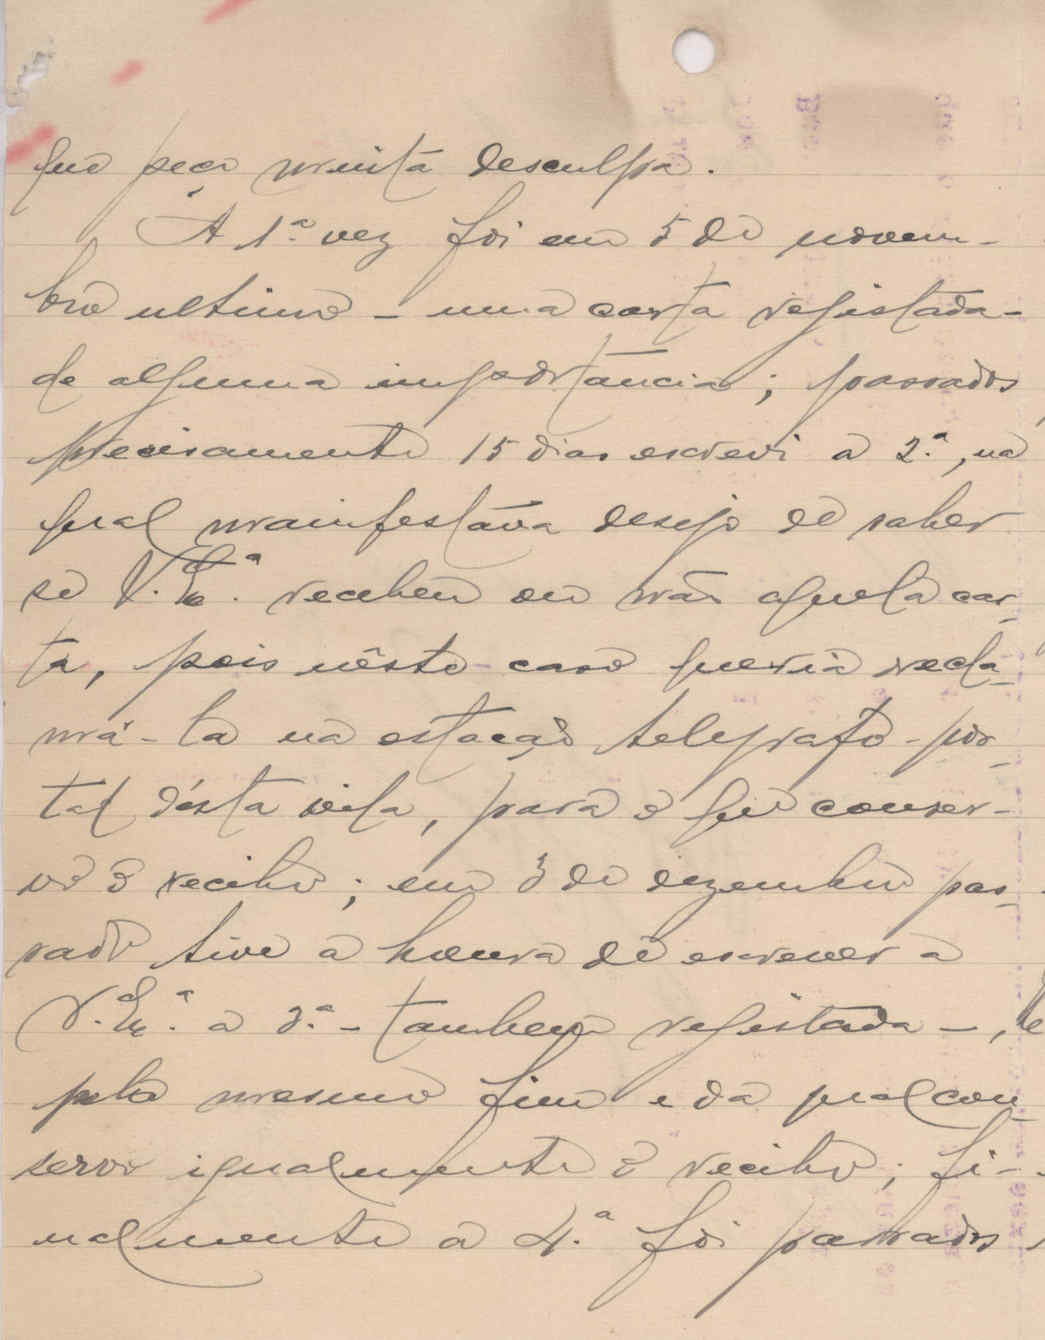 que peço muita desculpa.
A 1.ª vez foi em 5 de novem-
bro ultimo - uma carta registada -
de alguma importancia; passados
precisamente 15 dias escrevi a 2.ª, na
qual manifestava desejo de saber
se V. Ex.ª recebeu ou não aquela car-
ta, pois nêste caso queria recla-
má-la na estação telegrafo-pos-
tal désta vila, para o que conser-
vo o recibo; em 3 de dezembro pas-
sado tive a honra de escrever a
V. Ex.ª a 3.ª - tambem registada -, e
pelo mesmo fim e da qual con-
servo igualmente o recibo; fi-
nalmente a 4.ª foi passados